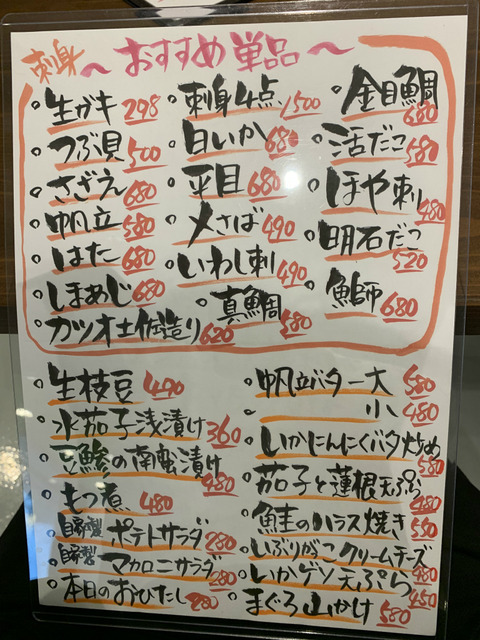 刺身
〜おすすめ単品〜
生ガキ 298
つぶ貝 500
さざえ 680
帆立 580
はた 680
しまあじ 680
カツオ土佐造り 620
刺身4点 1500
白いか 680
平目 680
〆さば 490
いわし刺 490
真鯛 580
金目鯛 680
活だこ 580
ほや刺 480
明石だこ 520
鰤 680
生枝豆 490
水茄子浅漬け 360
豆鯵の南蛮漬け 480
もつ煮 480
自家製 ポテトサラダ 280
自家製 マカロニサラダ 280
本日のおひたし 280
帆立バター大 580
小 480
いかにんにくバタ炒め 580
茄子と蓮根天ぷら 480
鮭のハラス焼き 550
いぶりがっこクリームチーズ 480
いかゲソ天ぷら 450
まぐろ山かけ 580